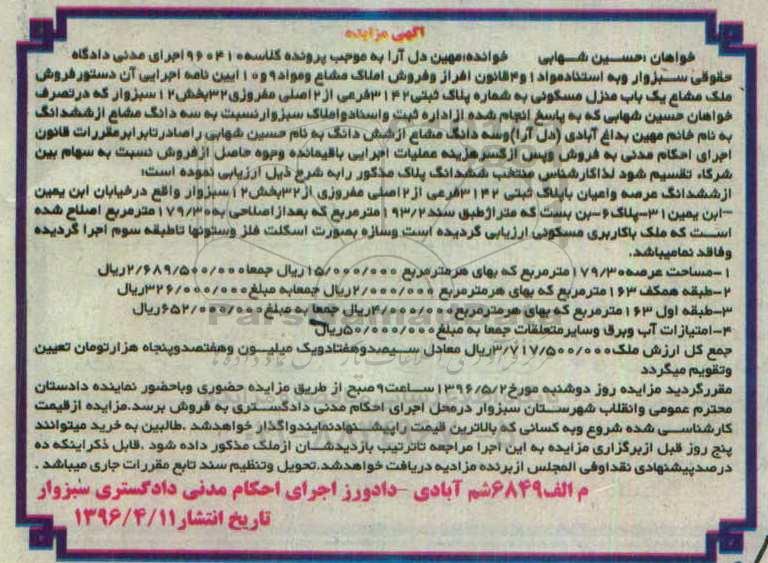 آگهی مزایده
خواهان :حسین شهابی خوانده:مهین دل آرا به موجب پرونده کلاسه۹۶۰۴۱۰اجرای مدنی دادگاه
حقوقی سبزوار وبه استنادمواد۱و۴قانون افراز وفروش املاک مشاع ومواد۹و۱۰آیین نامه اجرایی آن دستورفروش
ملک مشاع یک باب منزل مسکونی به شماره پلاک ثبتی۳۱۴۲فرعی از۲اصلی مفروزی۳۲بخش۱۲سبزوار که درتصرف
خواهان حسین شهابی که به پاسخ انجام شده ازاداره ثبت واسنادواملاک سبزوارنسبت به سه دانگ مشاع ازششدانگ
به نام خانم مهین بداغ آبادی (دل آرا)وسه دانگ مشاع ازشش دانگ به نام حسین شهابی راصادرتابرابرمقررات قانون
اجرای احکام مدنی به فروش وپس ازکسرهزینه عملیات اجرایی باقیمانده وجوه حاصل ازفروش نسبت به سهام بین
شرکاء تقسیم شود لذاکارشناس منتخب ششدانگ پلاک مذکور رابه شرح ذیل ارزیابی نموده است:
ازششدانگ عرصه واعیان باپلاک ثبتی ۳۱۴۲فرعی از۲اصلی مفروزی از۳۲بخش۱۲سبزوار واقع درخیابان ابن یمین
-ابن یمین۳۱-پلاک۶-بن بست که متراژطبق سند۱۹۳/۲مترمربع که بعدازاصلاحی به۱۷۹/۳۰مترمربع اصلاح شده
است که ملک باکاربری مسکونی ارزیابی گردیده است وسازه بصورت اسکلت فلز وستونها تاطبقه سوم اجرا گردیده
وفاقد نمامیباشد.
۱-مساحت عرصه۱۷۹/۳۰مترمربع که بهای هرمترمربع ۱۵/۰۰۰/۰۰۰ریال جمعا۲/۶۸۹/۵۰۰/۰۰۰ریال
۲-طبقه همکف ۱۶۳مترمربع که بهای هرمترمربع ۲/۰۰۰/۰۰۰ریال جمعابه مبلغ۳۲۶/۰۰۰/۰۰۰ریال
۳-طبقه اول ۱۶۳مترمربع که بهای هرمترمربع۴/۰۰۰/۰۰۰ریال جمعا به مبلغ۶۵۲/۰۰۰/۰۰۰ریال
۴-امتیازات آب وبرق وسایرمتعلقات جمعا به مبلغ۵۰/۰۰۰/۰۰۰ریال
جمع کل ارزش ملک۳/۷۱۷/۵۰۰/۰۰۰ریال معادل سیصدوهفتادویک میلیون وهفتصدوپنجاه هزارتومان تعیین
وتقویم میگردد
مقررگردید مزایده روز دوشنبه مورخ۱۳۹۶/۵/۲ساعت۹صبح از طریق مزایده حضوری وباحضور نماینده دادستان
محترم عمومی وانقلاب شهرستان سبزوار درمحل اجرای احکام مدنی دادگستری به فروش برسد.مزایده ازقیمت
کارشناسی شده شروع وبه کسانی که بالاترین قیمت راپیشنهادنمایندواگذار خواهدشد .طالبین به خرید میتوانند
پنج روز قبل ازبرگزاری مزایده به این اجرا مراجعه تاترتیب بازدیدشان ازملک مذکور داده شود .قابل ذکراینکه ده
درصدپیشنهادی نقداوفی المجلس ازبرنده مزادیه دریافت خواهدشد.تحویل وتنظیم سند تابع مقررات جاری میباشد .
م الف۶۸۴۹شم آبادی -دادورز اجرای احکام مدنی دادگستری سبزوار
تاریخ انتشار۱۳۹۶/۴/۱۱